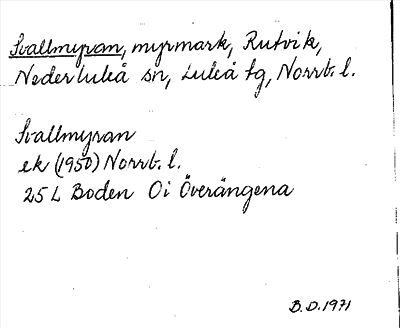 Svallmyran, myrmark, Rutvik,
Nederluleå sn, Luleå tg, Norrb. l.
Svallmyran
ek (1950) Norrb. l.
25 L Boden Oi Överängena
B.D. 1971